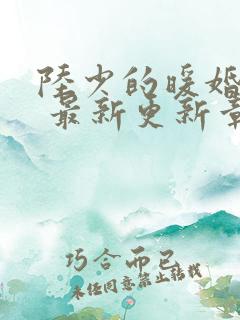 陆少的暖婚
最新更新章
巧合而已
未经同意禁止转载